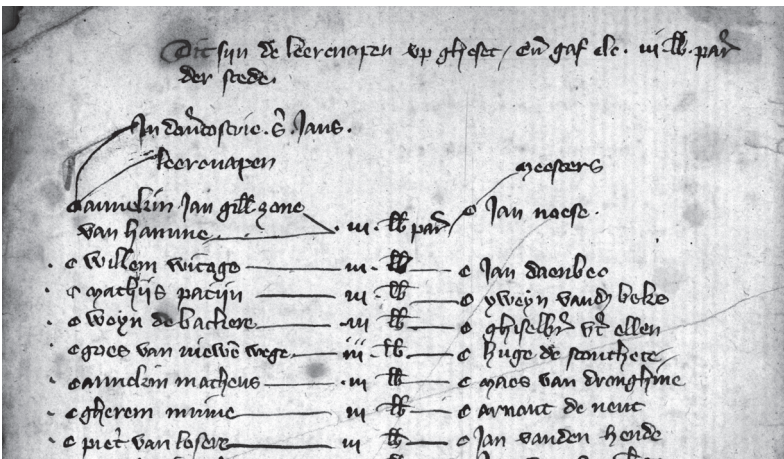 Dit syn de leercnapen up gheset / en̄ gaf elc. iij lb. par̄
der stede.
In dambostrie. S. Jans.
leercnapen
meesters
hannekin Jan gill zone
van hamme iij lb par̄ Jan noese.
willem witage iij lb Jan daenbec
mathijs patijn iij lb yweyn vand beke
woyn de backere iij lb ghiselbr̄ vt ellen
goes van niewē wege iij lb huge de
hannekin matheus iij lb maes van dronghine
gherem minne iij lb arnout de neut
piet van losere iij lb Jan vanden hende